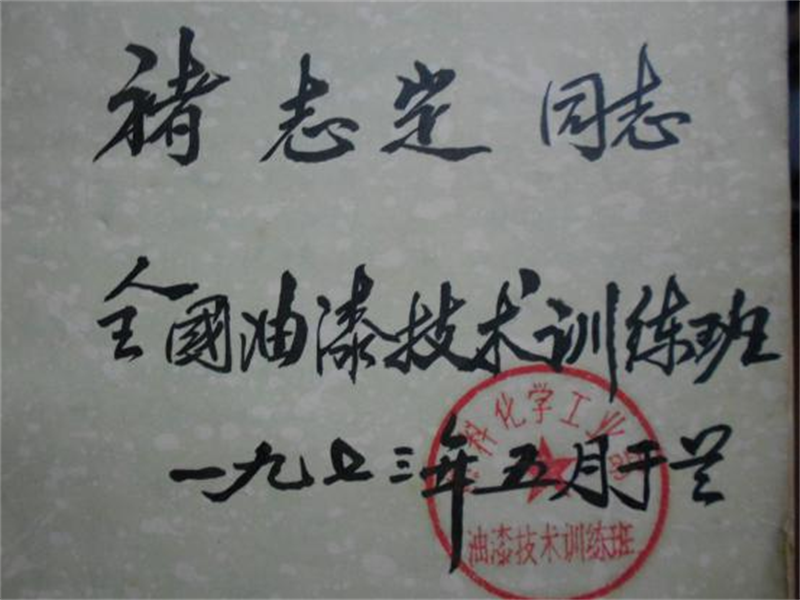 褚志定 同志
全國油漆技术训练班
一九七三年五月于兰
料化学工业
油漆技术训练班